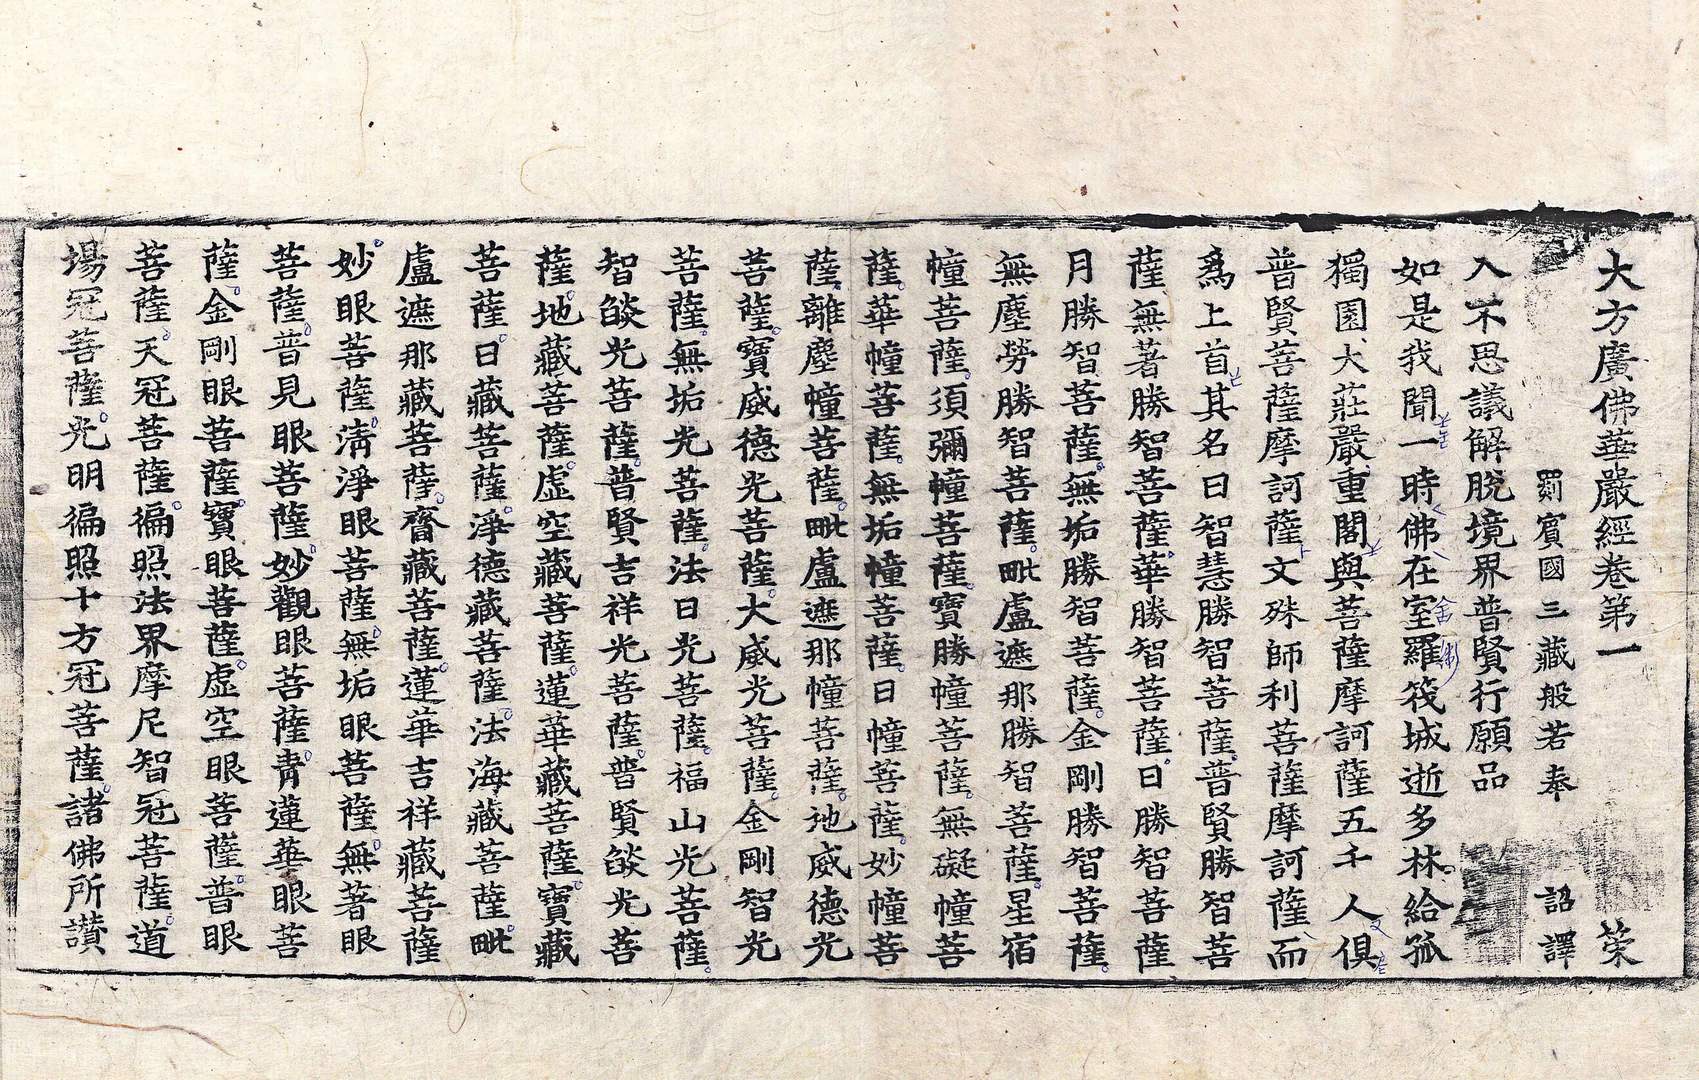 大方廣佛華嚴經卷第一 榮
罽賓國三藏般若奉 詔譯
入不思議解脫境界普賢行願品
如是我聞一時佛在室羅筏城逝多林給孤
獨園大莊嚴重閣與菩薩摩訶薩五千人俱
普賢菩薩摩訶薩文殊師利菩薩摩訶薩而
爲上首其名曰智慧勝智菩薩普賢勝智菩
薩無著勝智菩薩華勝智菩薩日勝智菩薩
月勝智菩薩無垢勝智菩薩金剛勝智菩薩
無塵勞勝智菩薩毗盧遮那勝智菩薩星宿
幢菩薩須彌幢菩薩寶勝幢菩薩無礙幢菩
薩華幢菩薩無垢幢菩薩日幢菩薩妙幢菩
薩離塵幢菩薩毗盧遮那幢菩薩地威德光
菩薩寶威德光菩薩大威光菩薩金剛智光
菩薩無垢光菩薩法日光菩薩福山光菩薩
智燄光菩薩普賢吉祥光菩薩普賢燄光菩
薩地藏菩薩虛空藏菩薩蓮華藏菩薩寶藏
菩薩日藏菩薩淨德藏菩薩法海藏菩薩毗
盧遮那藏菩薩齋藏菩薩蓮華吉祥藏菩薩
妙眼菩薩清淨眼菩薩無垢眼菩薩無著眼
菩薩普見眼菩薩妙觀眼菩薩青蓮華眼菩
薩金剛眼菩薩寶眼菩薩虛空眼菩薩普眼
菩薩天冠菩薩徧照法界摩尼智冠菩薩道
場冠菩薩光明徧照十方冠菩薩諸佛所讃